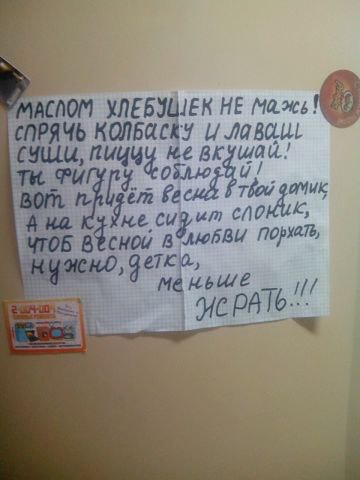 МАСЛОМ ХЛЕБУШЕК НЕ мажь!
СПРЯЧЬ КОЛБАСКУ И ЛАВАШ
СУШИ, ПИЦЦУ НЕ ВКУШАЙ!
ТЫ ФИГУРУ СОБЛЮДАЙ!
ВОТ ПРИДЁТ ВЕСНА В ТВОЙ ДОМИК,
А НА КУХНЕ СИДИТ СЛОНИК,
ЧТОБ ВЕСНОЙ В ЛЮБВИ ПОРХАТЬ,
НУЖНО, ДЕТКА,
МЕНЬШЕ
ЖРАТЬ!!!
2-004-004